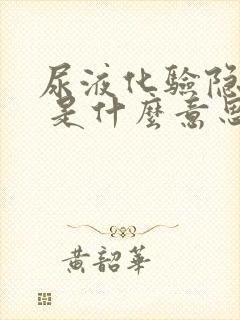 尿液化驗隐
是什麼意思
黄韶華